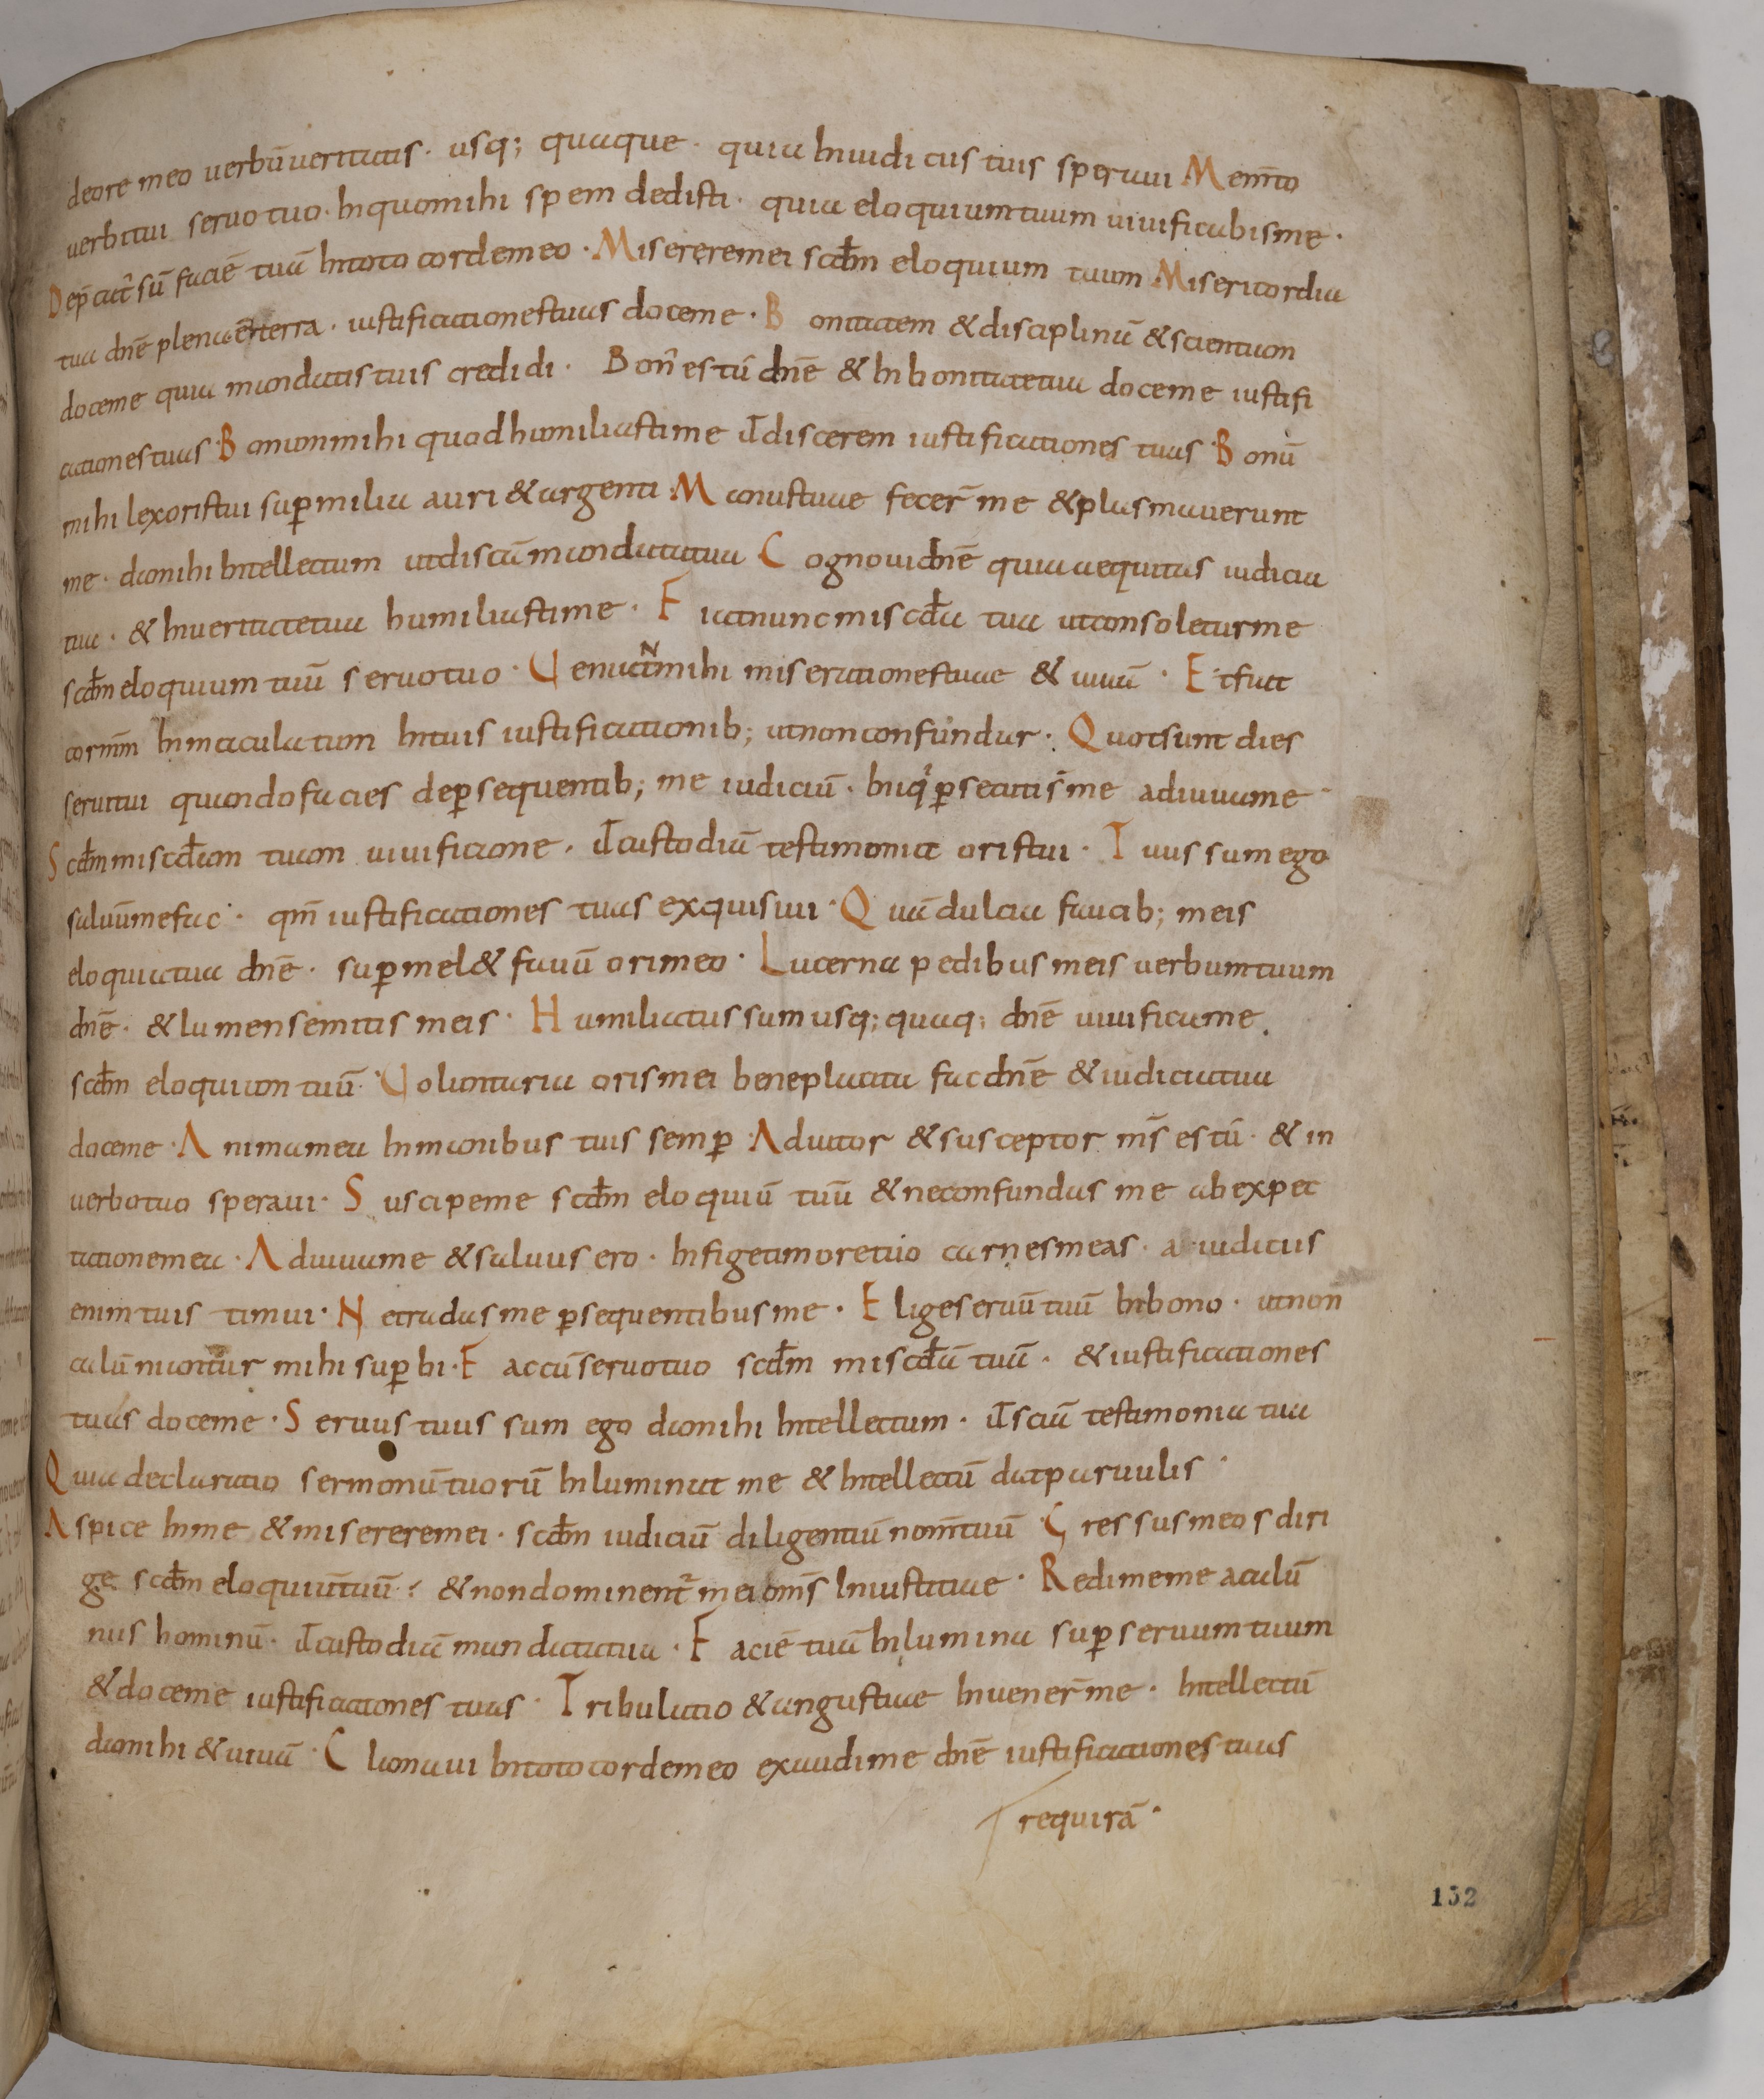 de ore meo uerbū ueritatis · usq; quaque · quia In iudiciis tuis speraui Mem̄to
uerbi tui seruo tuo · In quo mihi spem dedisti · quia eloquium tuum uiuificabis me ·
Dep̄cat' sū faciē tuā In toto corde meo · Miserere mei scd̄m eloquium tuum Misericordia
tua dn̄e plena ē terra · iustificationes tuas doce me · Bonitatem & disciplinā & scientiam
doce me quia mandatis tuis credidi · Bon' es tū dn̄e & In bonitate tua doce me iustifi
cationes tuas · Bonum mihi quod humiliasti me ut discerem iustificationes tuas · Bonū
mihi lex oris tui sup̄ milia auri & argenti · Manus tuae fecer̄ me & plasmauerunt
me · da mihi Intellectum ut discā mandata tua · Cognoui dn̄e quia aequitas iudicia
tua · & In ueritate tua humiliasti me · Fiat nunc miscd̄a tua ut consoletur me
scd̄m eloquium tuū seruo tuo · Ueniant mihi miserationes tuae & uiuā · Et fiat
cor m̄m Inmaculatum In tuis iustificationib; ut non confundar · Quot sunt dies
serui tui quando facies de p̄sequentib; me iudiciū · Iniq' p̄secuti s̄ me adiuua me
Scd̄m miscd̄iam tuam uiuifica me · ut custodiā testimonia oris tui · Tuus sum ego
saluū me fac · qm̄ iustificationes tuas exquisiui · Quā dulcia faucib; meis
eloquia tua dn̄e · sup̄ mel & fauū ori meo · Lucerna pedibus meis uerbum tuum
dn̄e · & lumen semitis meis · Humiliatus sum usq; quaq; dn̄e uiuifica me
scd̄m eloquium tuū · Uoluntaria oris mei beneplacita fac dn̄e & iudicia tua
doce me · Anima mea In manibus tuis semp̄ · Adiutor & susceptor m̄s es tū · & in
uerbo tuo speraui · Suscipe me scd̄m eloquiū tuū & ne confundas me ab expec
tatione mea · Adiuua me & saluus ero · Infige timore tuo carnes meas · a iudiciis
enim tuis timui · Ne tradas me p̄sequentibus me · Elige seruū tuū In bono · ut non
calūniantur mihi sup̄bi · Fac cū seruo tuo scd̄m miscd̄ā tuā · & iustificationes
tuas doce me · Seruus tuus sum ego da mihi Intellectum · ut sciā testimonia tua
Quia declaratio sermonū tuorū Inluminat me & Intellectū dat paruulis ·
Aspice In me & miserere mei · scd̄m iudiciū diligentiū nom̄ tuū · Gressus meos diri
ge scd̄m eloquiū tuū : & non dominent' mei om̄s Iniustitiae · Redime me a calū
niis hominū · ut custodiā mandata tua · Faciē tuā Inlumina sup̄ seruum tuum
& doce me iustificationes tuas · Tribulatio & angustiae Inuener̄ me · Intellectū
da mihi & uiuā · Clamaui In toto corde meo exaudi me dn̄e iustificationes tuas
requirā ·
132